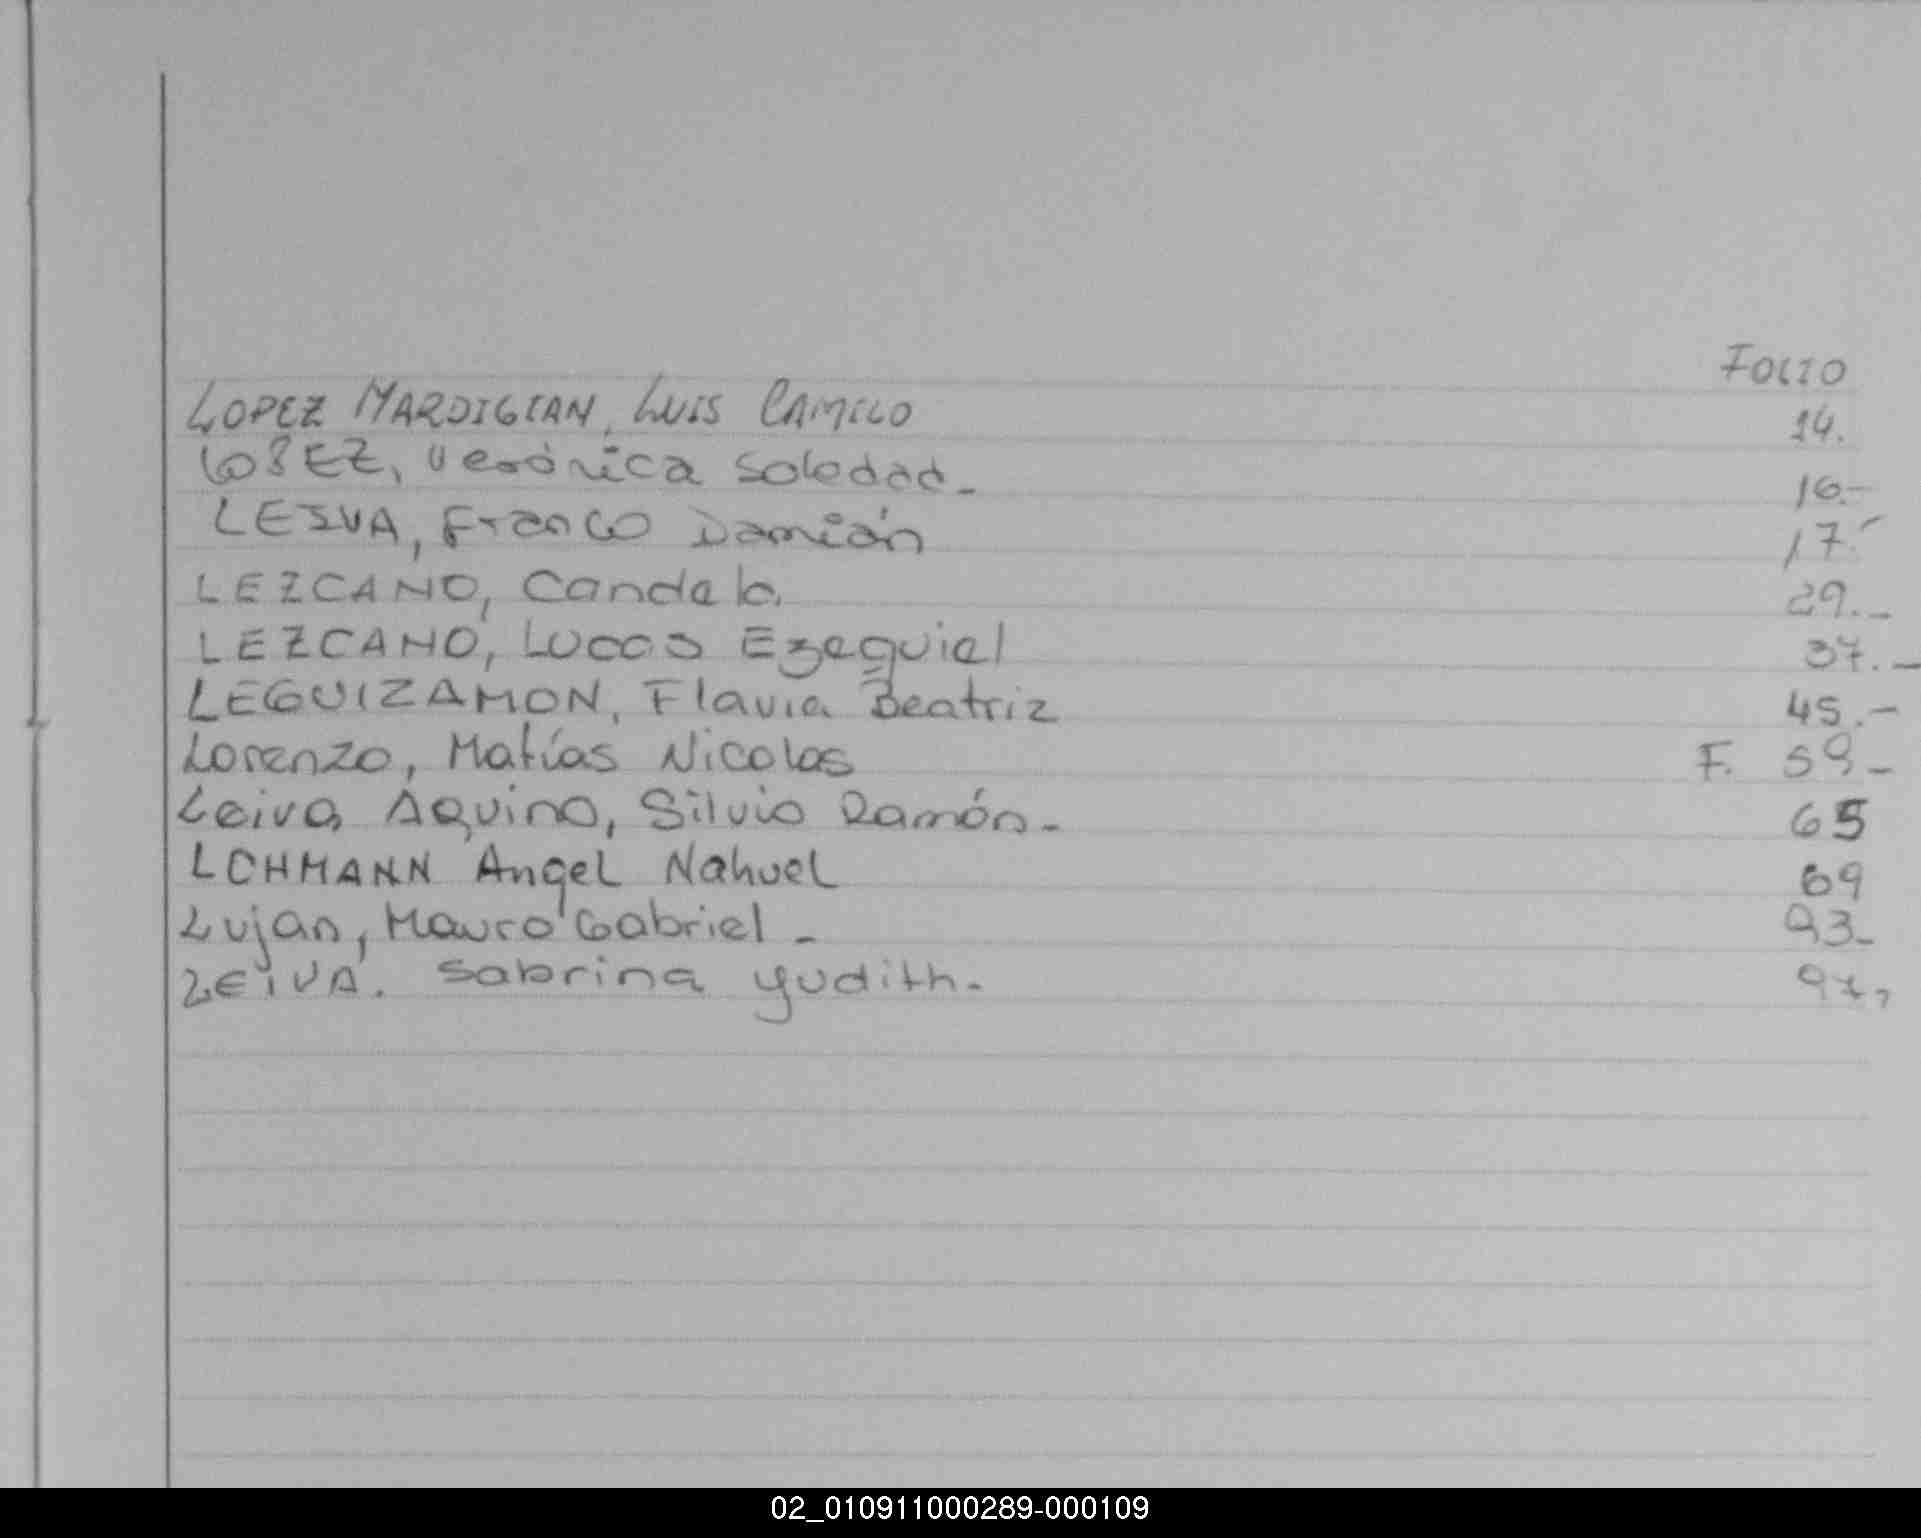 FOLIO
LOPEZ MARDIGIAN, LUIS CAMILO 14.
LOPEZ, Verónica Soledad. 16.-
LEIVA, Franco Damián 17.-
LEZCANO, Candela. 29.-
LEZCANO, Lucas Ezequiel 37.-
LEGUIZAMON, Flavia Beatriz 45.-
Lorenzo, Matías Nicolas F. 59-
Leiva Aquino, Silvio Ramón- 65
LOHMANN Angel Nahuel 69
Lujan, Mauro Gabriel - 93-
LEIVA. Sabrina yudith. 97,
02_010911000289-000109